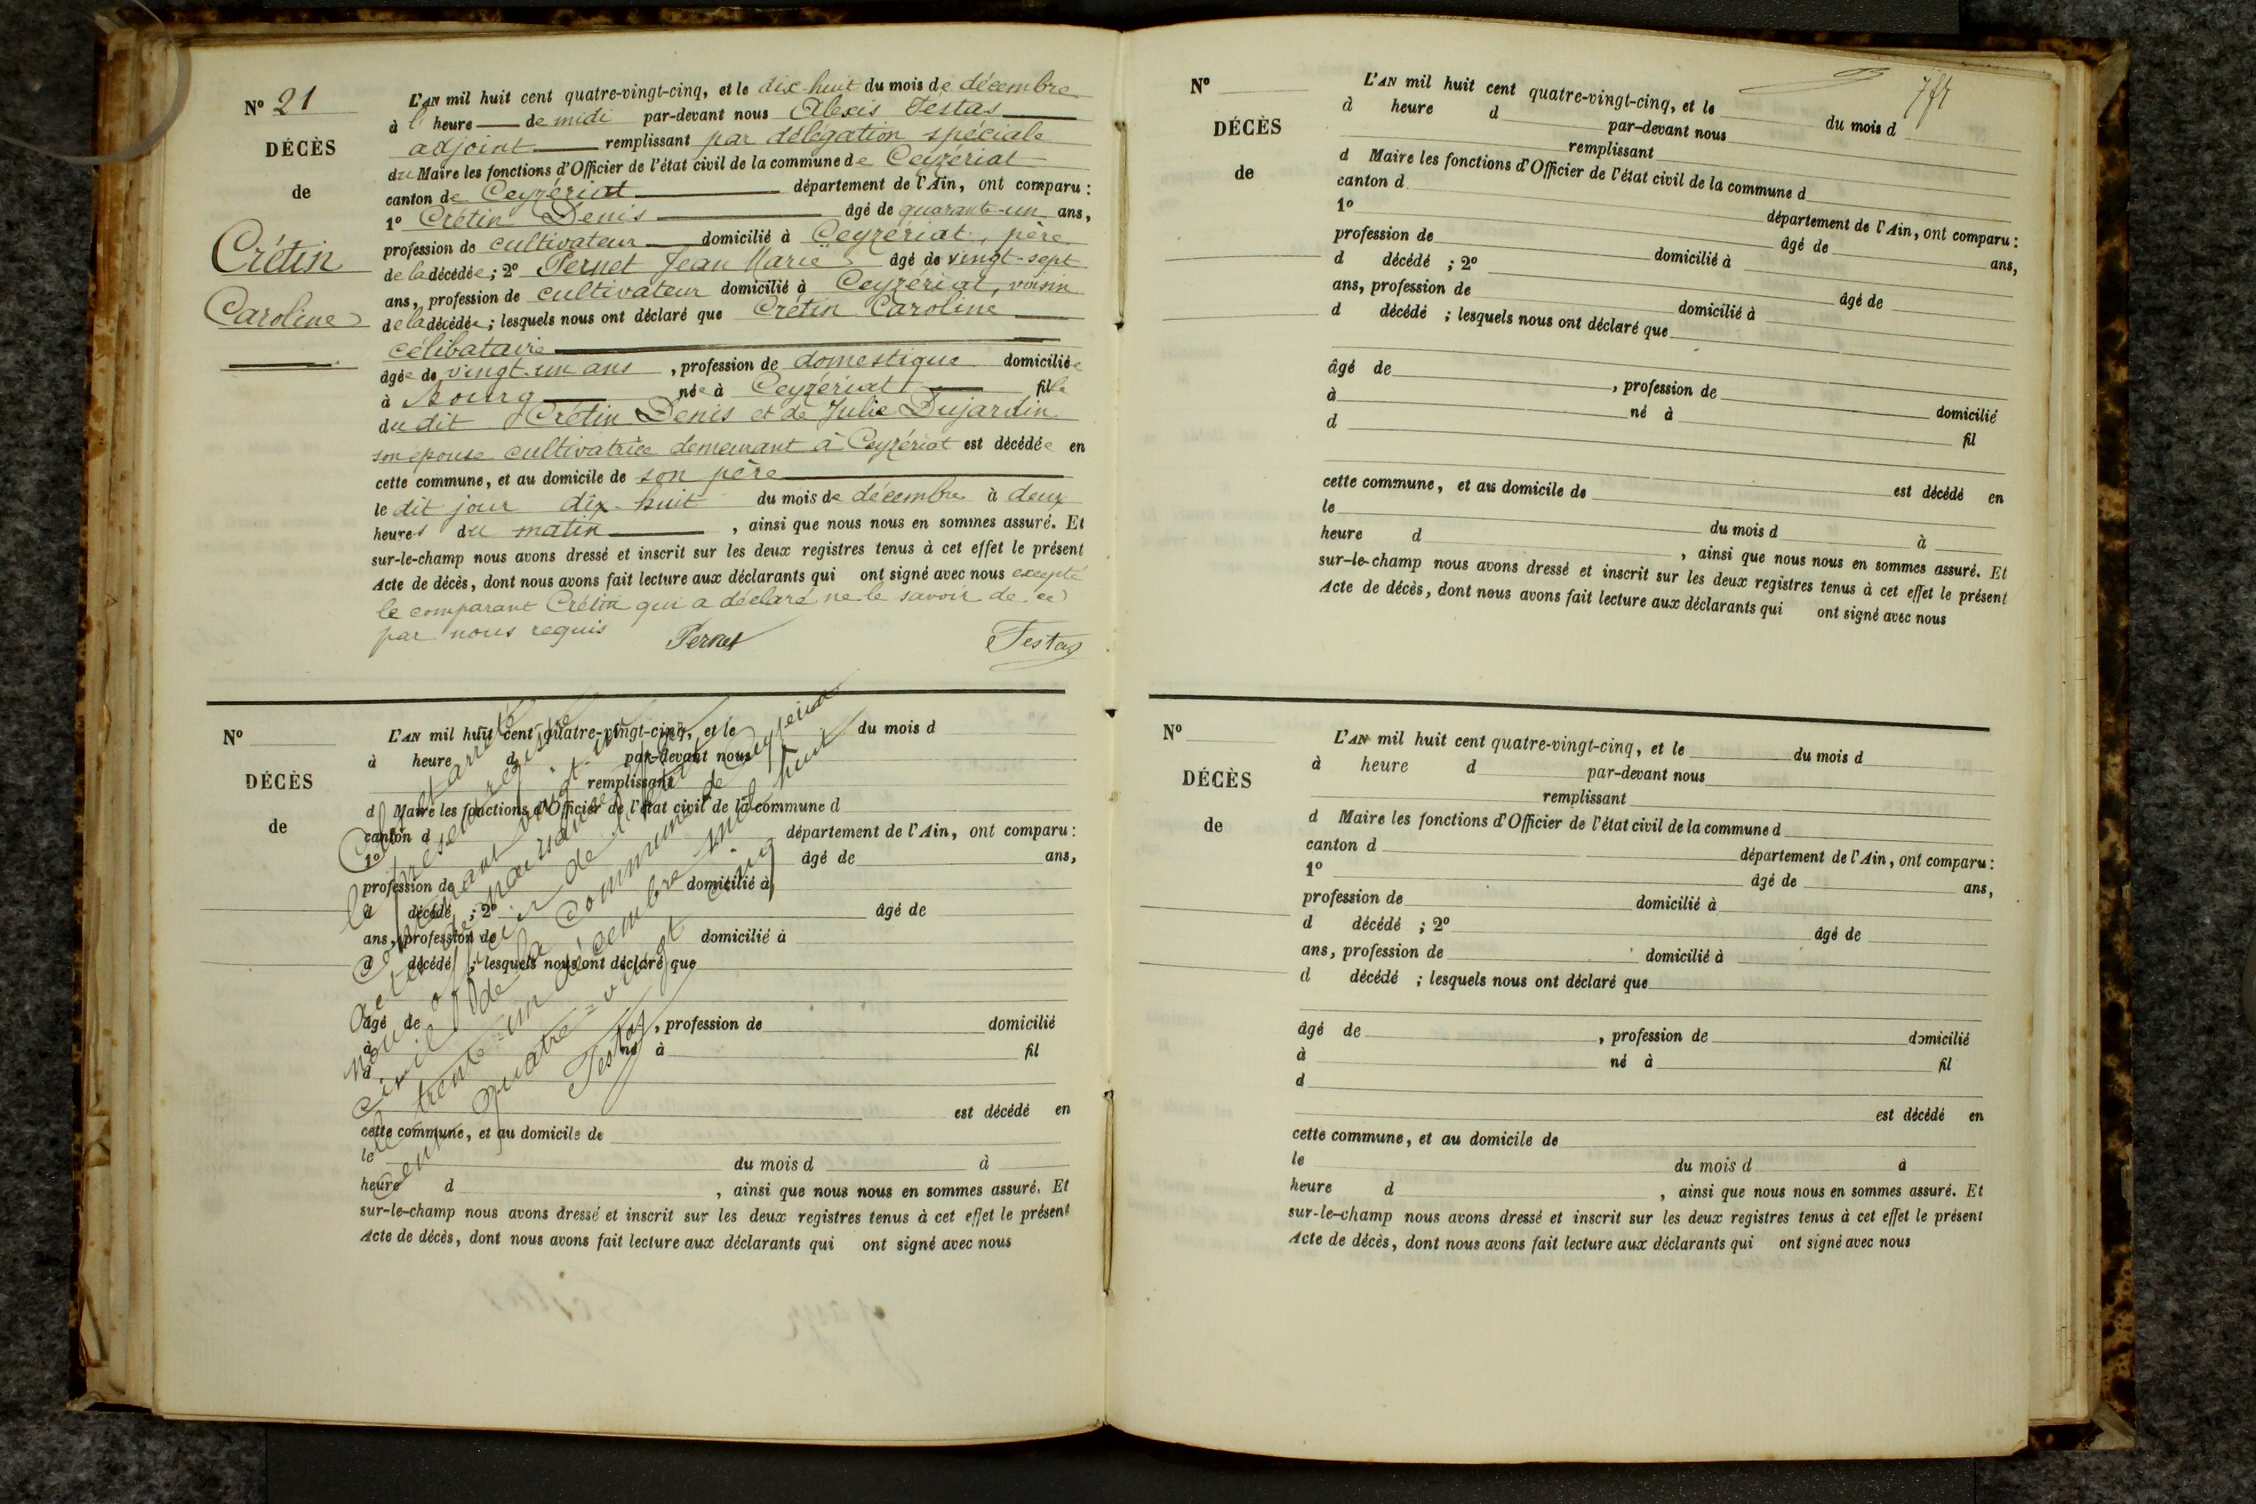 No 21
DÉCÈS
de
Crétin
Caroline
L'AN mil huit cent quatre-vingt-cinq, et le dix-huit du mois de décembre
à l' heure de midi par-devant nous Alexis Testas
adjoint remplissant par délégation spéciale
du Maire les fonctions d'Officier de l'état civil de la commune de Ceyzériat
canton de Ceyzériat département de l'Ain, ont comparu :
1o Crétin Denis âgé de quarante-un ans,
profession de cultivateur domicilié à Ceyzériat, père
de la décédée ; 2o Pernet Jean Marie âgé de vingt-sept
ans, profession de cultivateur domicilié à Ceyzériat, voisin
de la décédée ; lesquels nous ont déclaré que Crétin Caroline
célibataire
âgée de vingt-un ans , profession de domestique domiciliée
à Bourg née à Ceyzériat fille
du dit Crétin Denis et de Julie Dujardin
son épouse cultivatrice demeurant à Ceyzériat est décédée en
cette commune, et au domicile de son père
le dit jour dix-huit du mois de décembre à deux
heures du matin , ainsi que nous nous en sommes assuré. Et
sur-le-champ nous avons dressé et inscrit sur les deux registres tenus à cet effet le présent
Acte de décès, dont nous avons fait lecture aux déclarants qui ont signé avec nous excepté
le comparant Crétin qui a déclaré ne le savoir de ce
par nous requis
Pernet Testas
No
DÉCÈS
de
L'AN mil huit cent quatre-vingt-cinq, et le du mois d
à heure d par-devant nous
remplissant
d Maire les fonctions d'Officier de l'état civil de la commune d
canton d département de l'Ain, ont comparu :
1o âgé de ans,
profession de domicilié à
d décédé ; 2o âgé de
ans, profession de domicilié à
d décédé ; lesquels nous ont déclaré que
âgé de , profession de domicilié
à né à fil
d
est décédé en
cette commune, et au domicile de
le du mois d à
heure d , ainsi que nous nous en sommes assuré. Et
sur-le-champ nous avons dressé et inscrit sur les deux registres tenus à cet effet le présent
Acte de décès, dont nous avons fait lecture aux déclarants qui ont signé avec nous
Clos et arrêté
le présent registre
contenant vingt-un
actes de
nous officier de l'état
civil de la commune de Ceyzériat
le trente-un décembre mil huit
cent quatre-vingt cinq
Testas
No
DÉCÈS
de
L'AN mil huit cent quatre-vingt-cinq, et le du mois d
à heure d par-devant nous
remplissant
d Maire les fonctions d'Officier de l'état civil de la commune d
canton d département de l'Ain, ont comparu :
1o âgé de ans,
profession de domicilié à
d décédé ; 2o âgé de
ans, profession de domicilié à
d décédé ; lesquels nous ont déclaré que
âgé de , profession de domicilié
à né à fil
d
est décédé en
cette commune, et au domicile de
le du mois d à
heure d , ainsi que nous nous en sommes assuré. Et
sur-le-champ nous avons dressé et inscrit sur les deux registres tenus à cet effet le présent
Acte de décès, dont nous avons fait lecture aux déclarants qui ont signé avec nous
No
DÉCÈS
de
L'AN mil huit cent quatre-vingt-cinq, et le du mois d
à heure d par-devant nous
remplissant
d Maire les fonctions d'Officier de l'état civil de la commune d
canton d département de l'Ain, ont comparu :
1o âgé de ans,
profession de domicilié à
d décédé ; 2o âgé de
ans, profession de domicilié à
d décédé ; lesquels nous ont déclaré que
âgé de , profession de domicilié
à né à fil
d
est décédé en
cette commune, et au domicile de
le du mois d à
heure d , ainsi que nous nous en sommes assuré. Et
sur-le-champ nous avons dressé et inscrit sur les deux registres tenus à cet effet le présent
Acte de décès, dont nous avons fait lecture aux déclarants qui ont signé avec nous